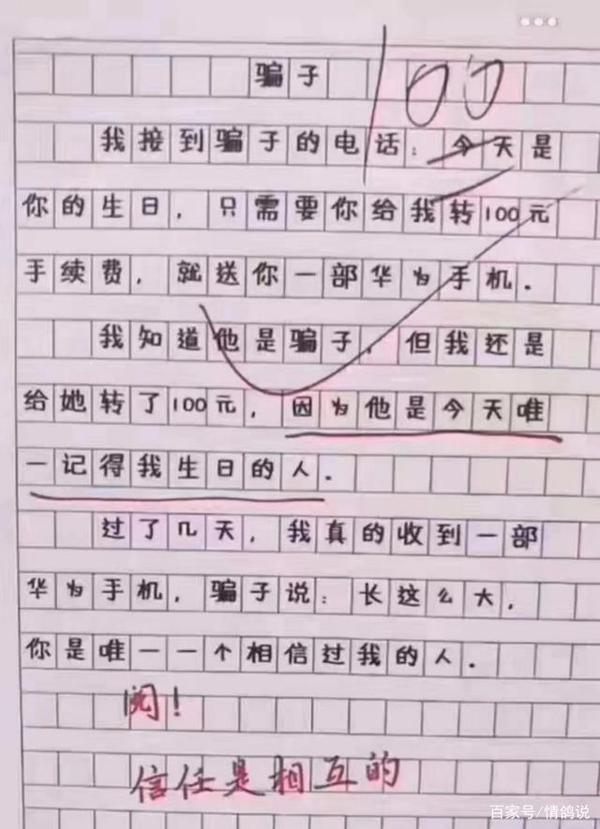 骗子
100
我接到骗子的电话:今天是
你的生日,只需要你给我转100元
手续费,就送你一部华为手机.
我知道他是骗子,但我还是
给她转了100元,因为他是今天唯
一记得我生日的人.
过了几天,我真的收到一部
华为手机,骗子说:长这么大,
你是唯一一个相信过我的人.
阅!
信任是相互的
百家号/情鸽说